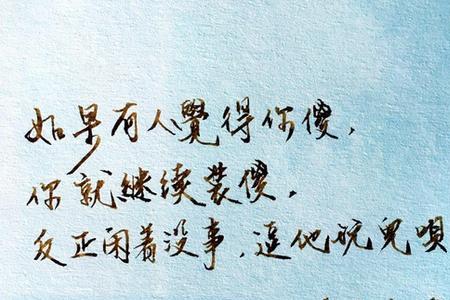 如果有人覺得你傻，
你就继续装傻，
反正闲着没事，逗他玩兒唄